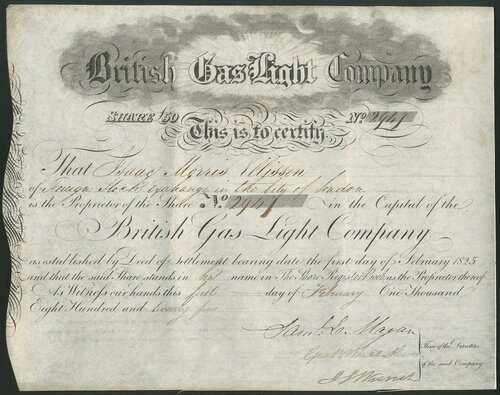 British Gas Light Company
SHARE £50 No 2941
This is to certify
That Isaac Morris
of Stock Exchange in the City of London
is the Proprietor of the Share No 2941 in the Capital of the
British Gas Light Company
as established by Deed of Settlement bearing date the first day of February 1825
and that the said Share stands in his name in The Share Register Book as the Proprietor thereof
As Witness our hands this first day of February One Thousand
Eight Hundred and twenty five
Saml. Magan
Three of the Directors
of the said Company